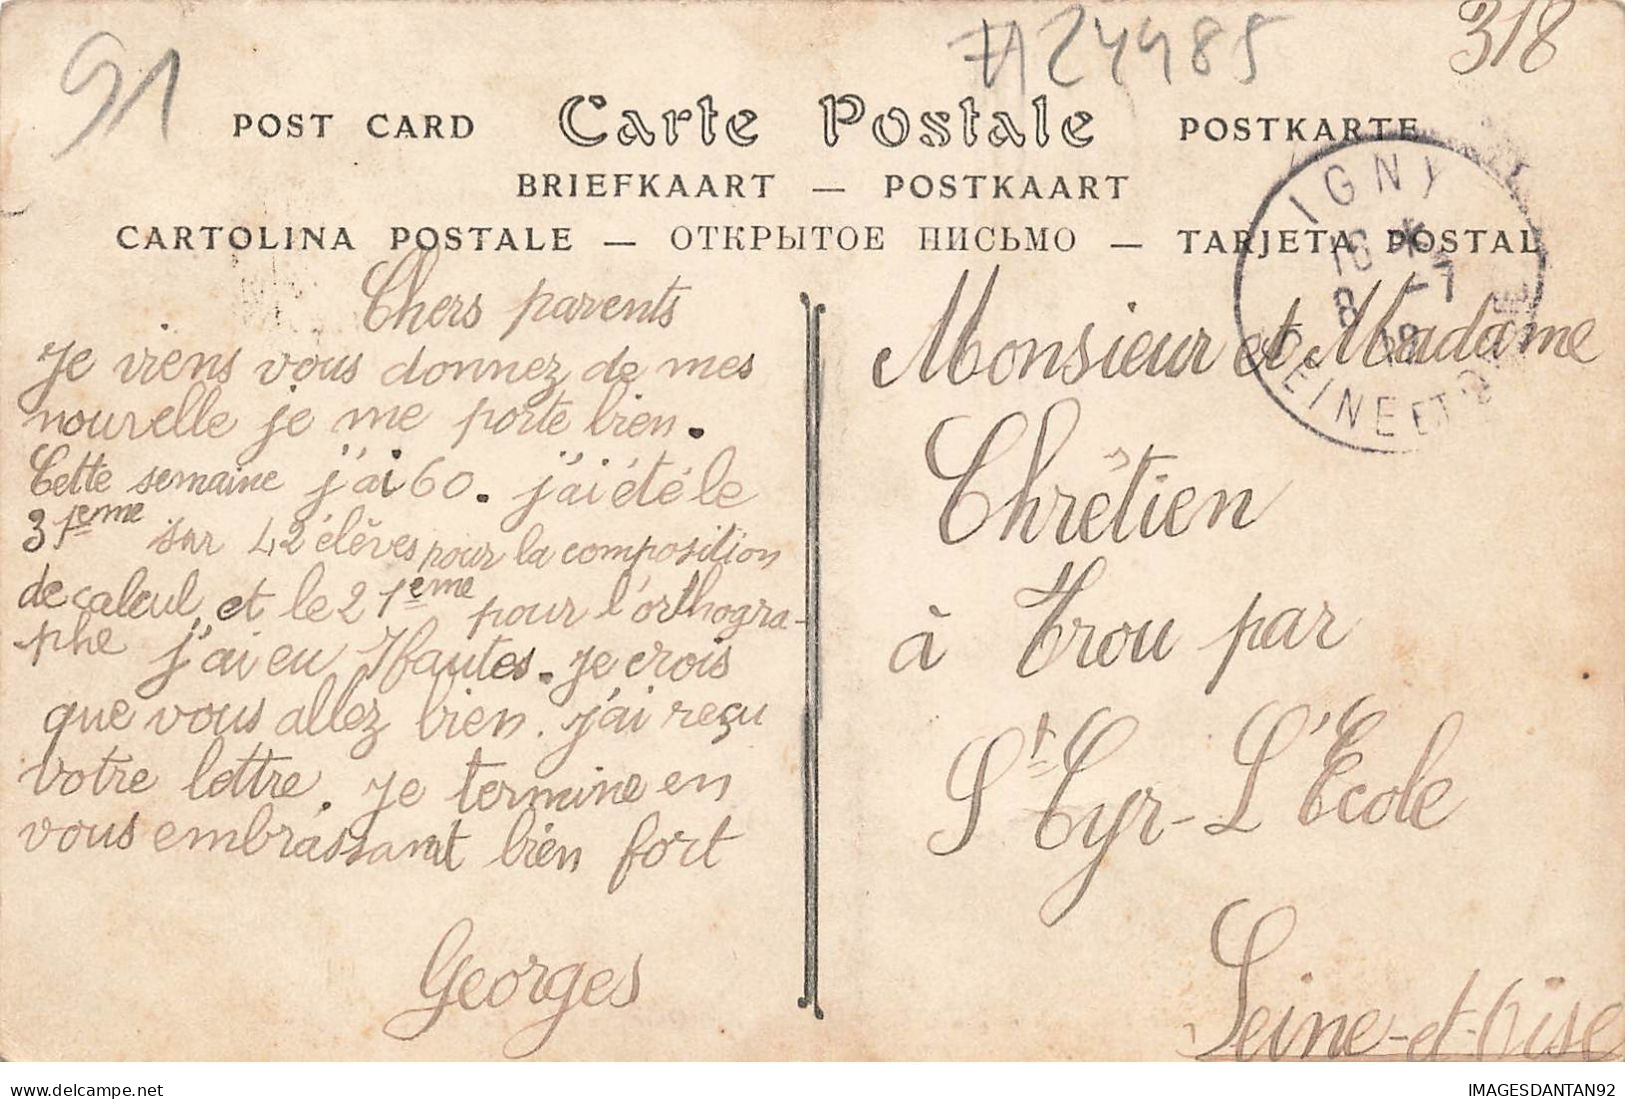 91
#24485
318
POST CARD Carte Postale POSTKARTE
BRIEFKAART — POSTKAART
CARTOLINA POSTALE — ОТКРЫТОЕ ПИСЬМО — TARJETA POSTAL
IGNY
16 *
8 -7
18
SEINE ET OISE
Chers parents
Je viens vous donnez de mes
nourelle je me porte bien.
Cette semaine j'ai 60. j'ai été le
31eme sur 42 élèves pour la composition
de calcul, et le 21eme pour l'orthogra-
phe j'ai eu 7 fautes. Je crois
que vous allez bien. j'ai reçu
votre lettre. Je termine en
vous embrassant bien fort
Georges
Monsieur et Madame
Chrêtien
à Trou par
St Cyr-L'Ecole
Seine-et-Oise
delcampe.net
IMAGESDANTAN92